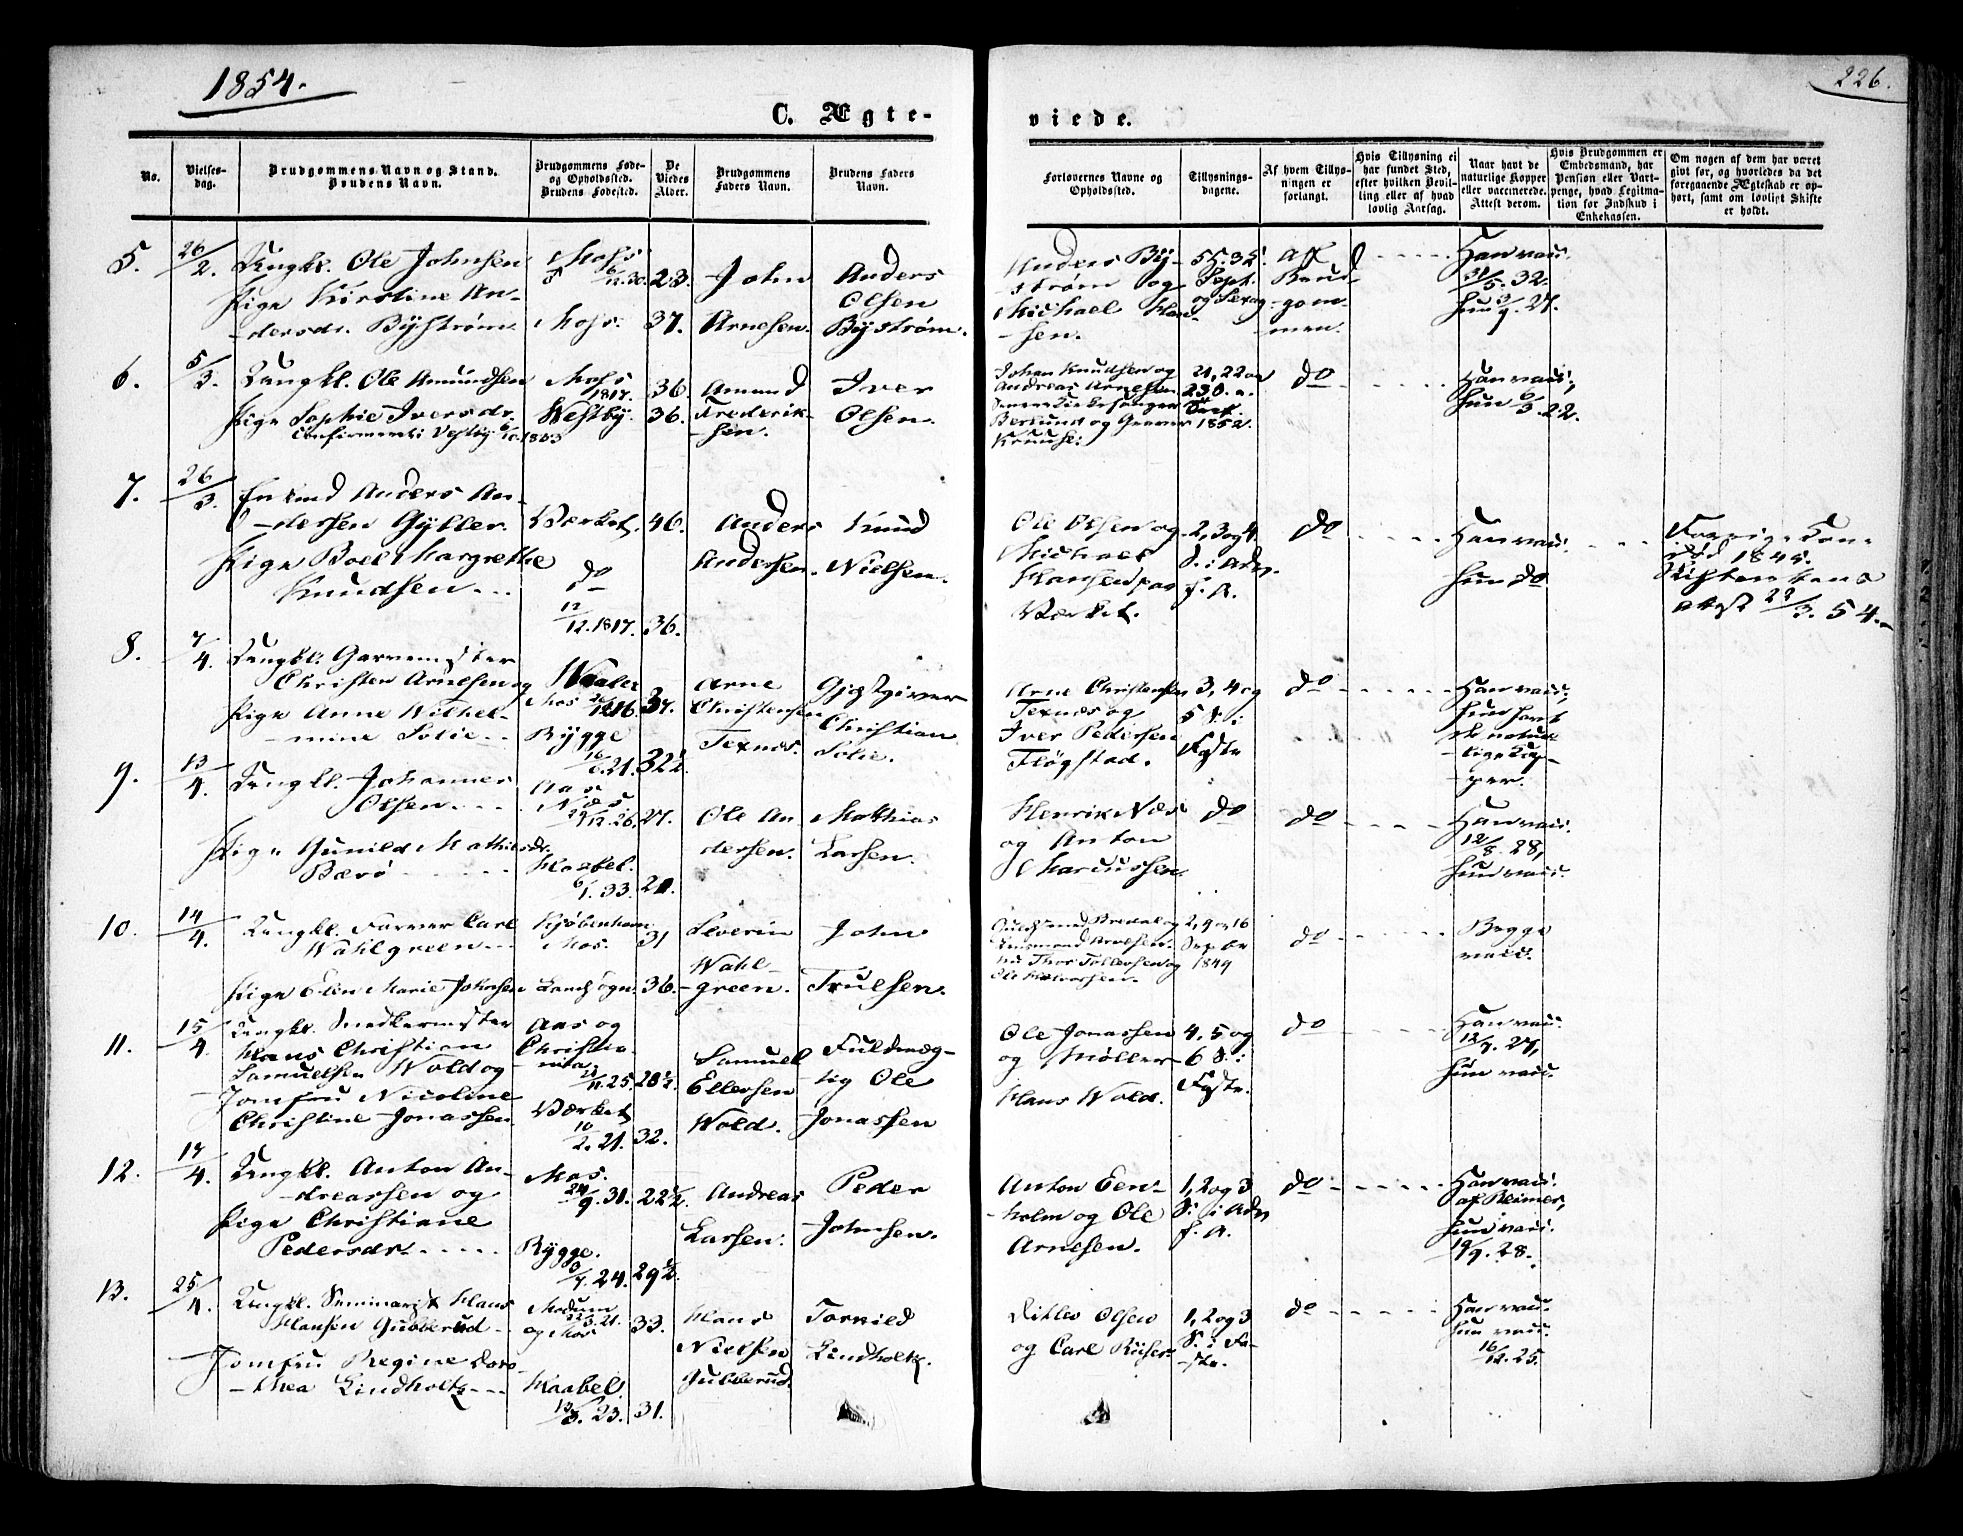 1854.
226.
C. Ægteviede.
No.
Vielsesdag.
Brudgommens Navn og Stand.
Brudens Navn.
Brudgommens Føde- og Opholdssted.
Brudens Fødested.
De Viedes Alder.
Brudgommens Faders Navn.
Brudens Faders Navn.
Forlovernes Navne og Opholdssted.
Tillysningsdagene.
Af hvem Tillysningen er forlangt.
Hvis Tillysning ei har fundet Sted, efter hvilken Bevilling eller af hvad lovlig Aarsag.
Naar havt de naturlige Kopper eller vaccinerede. Attest derom.
Hvis Brudgommen er Embedsmand, har Pension eller Vartpenge, hvad Legitimation for Indskud i Enkekassen.
Om nogen af dem har været givt før, og hvorledes da det foregaaende Ægteskab er ophørt, samt om lovligt Skifte er holdt.
5. 26/2. Ungkl. Ole Johnsen
Pige Kirstine An-
dersdr. Byström
Moss
Moss. 23. 37.
John Arnesen.
Anders Olsen Byström.
Anders By-
ström og
Michael Han-
sen.
Sept. og Sexag
af Brud-
gom-
men.
Han vacc.
31/5. 32.
hun 3/9. 27.
6. 5/3. Ungkl. Ole Amundsen
Pige Sophie Iversdr.
Moss 1817. 36.
Westby. 36.
Amund Frederik-
sen.
Iver Olsen.
Johan Knudsen og
Andreas Arnesen
21, 22 og 23
1852.
do
Han vacc.,
hun 6/3. 22.
7. 26/3. Enkemd Anders An-
dersen Gyller.
Pige Boel Margrethe
Knudsen
Værket. 46.
do
12/12. 1817. 36.
Anders Andersen.
Knud Nielsen.
Ole Olsen og
Michael
Hansen paa
Værket.
2, 3 og 4
S. i Adv.
f. A.
do
Han vacc.
hun do
Forrige Kone
død 1845.
Skifterettens
Attest 22/3. 54.
8. 7/4. Ungkl. Garvermester
Christen Arnesen og
Pige Anne Wilhel-
mine Solie
Waaler
Moss 37.
Rygge
16/6. 21. 32½.
Arne Christensen Texnes.
Gjæstgiver Christian Solie.
Arne Christensen
Texnæs og
Iver Pedersen
Fløgstad.
3, 4 og
5 S. i
Faste
do
Han vacc.,
hun havt
de natur-
lige Kop-
per.
9. 13/4. Ungkl. Johannes
Olsen
Pige Gunild Mathiesdr.
Bærø
Aas
Næs
29/12. 26. 27.
Haabel.
6/1. 33. 21.
Ole An-
dersen.
Mathias Larsen.
Henrik Næs
og Anton
Marcussen.
do
do
Han vacc.
12/8. 28,
hun vacc.
10. 14/4. Ungkl. Farver Carl
Wahlgreen
Pige Elen Marie Johnsen
Kjøbenhavn
Moss. 31
36.
Severin Wahl-
green.
John Trulsen.
2, 9 og 16
1849
do
Begge
vacc.
11. 15/4. Ungkl. Snedkermester
Hans Christian
Samuelsen Wold og
Jomfru Nicoline
Christine Jonassen
Aas og
Christia-
nia
11. 25. 28½.
Værket
10/2. 21. 32.
Samuel Ellefsen Wold.
Fuldmæg-
tig Ole Jonassen
Ole Jonassen
og Møller
Hans Wold.
4, 5 og
6 S. i
Faste.
do
Han vacc.
12/9. 27,
hun vacc.
12. 17/4. Ungkl. Anton An-
dreassen og
Pige Christiane
Pedersdr.
Moss.
24/9. 31. 22½.
Rygge.
3/7. 24. 29½.
Andreas Larsen.
Peder Johnsen.
Anton Een-
holm og Ole
Arnesen.
1, 2 og 3
S. i Adv.
f. A.
do
Han vacc.
af Reimer,
hun vacc.
19/9. 28.
13. 25/4. Ungkl. Seminarist Hans
Hansen Gubberud
Jomfru Regine Doro-
thea Lindholtz
Modum
3. 21.
og Moss 33.
Haabel.
13/3. 23. 31.
Hans Nielsen Gubberud.
Torkild Lindholtz.
Ditlev Olsen
og Carl Riiser
1, 2 og 3
S. i Fa-
ste.
do
Han vacc.
hun vacc.
16/12. 25.